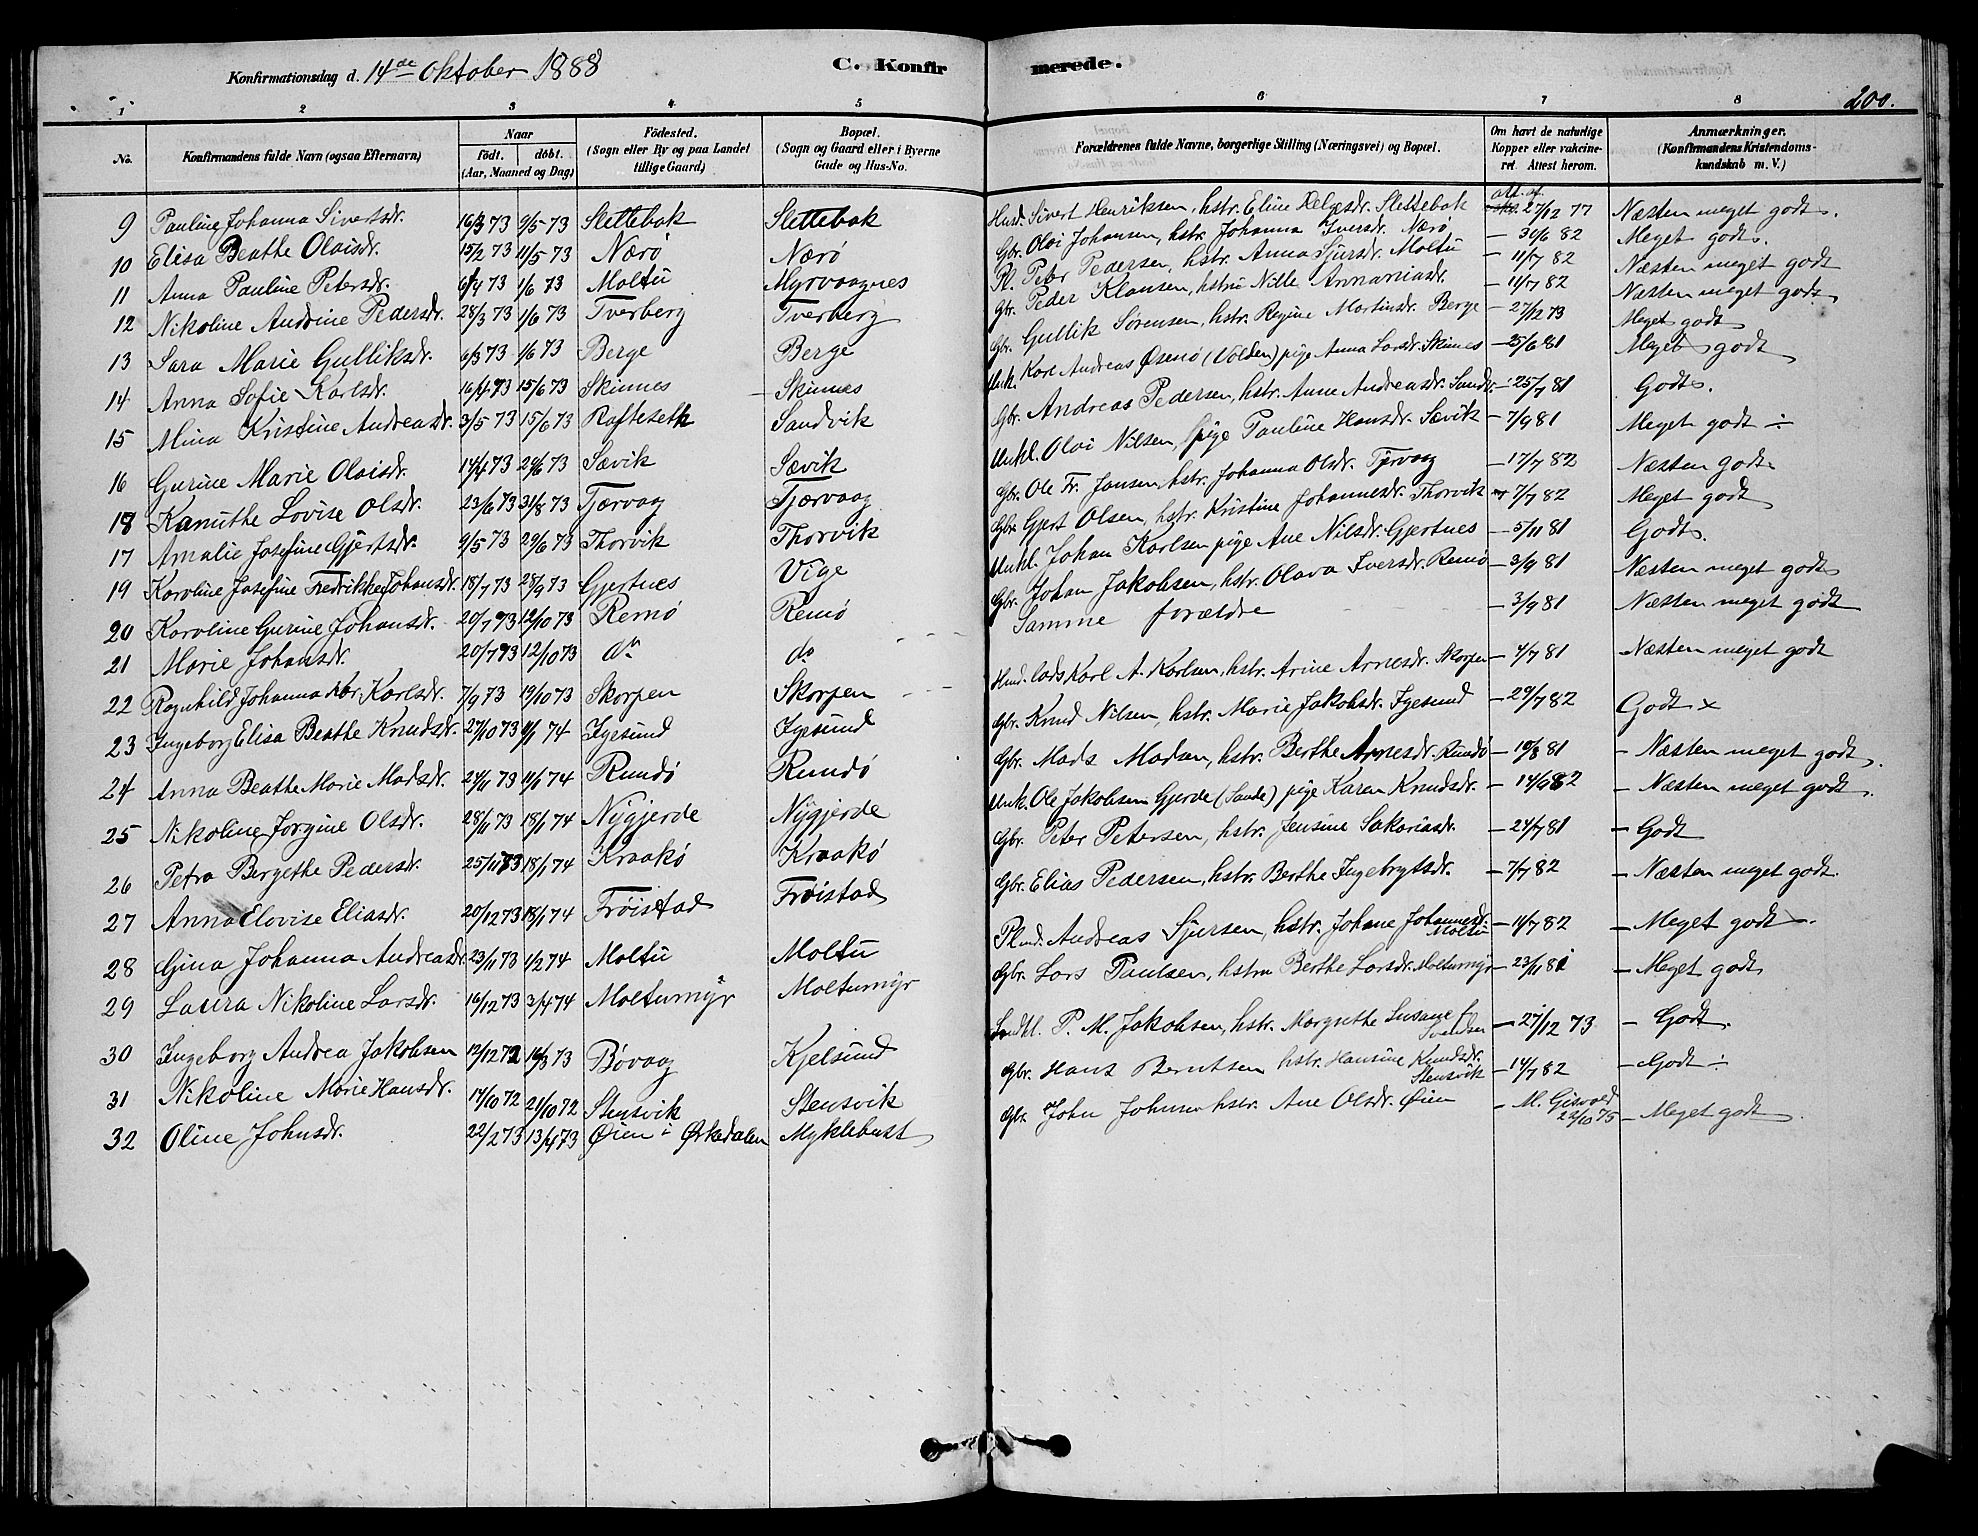 Konfirmationsdag d. 14de Oktober 1888 C. Konfirmerede. 200.
1 2 3 4 5 6 7 8
No. Konfirmandens fulde Navn (ogsaa Efternavn) Naar født. døbt. (Aar, Maaned og Dag) Födested. (Sogn eller By og paa Landet tillige Gaard) Bopæl. (Sogn og Gaard eller i Byerne Gade og Hus-No. Forældrenes fulde Navne, borgerlige Stilling (Næringsvei) og Bopæl. Om havt de naturlige Kopper eller vakcineret. Attest herom. Anmærkninger. (Konfirmandens Kristendomskundskab m. V.)
9 Pauline Johanna Sivertsdr. 16/3 73 9/5 73 Slettebak Slettebak Husd. Sivert Henriksen, hstr. Eline Helgesdr. Slettebak att. af 27/12 77 Næsten meget godt.
10 Elisa Beathe Olaisdr. 15/2 73 11/5 73 Nærö Nærö Gbr. Olai Johansen, hstr. Johanna Iversdr. Nærö — 30/6 82 Meget godt.
11 Anna Pauline Petersdr. 6/4 73 1/6 73 Moltu Myrvaagnes Pl. Peter Pedersen, hstr. Anna Sjursdr. Moltu — 11/7 82 Næsten meget godt
12 Nikoline Andrine Pedersdr. 28/3 73 1/6 73 Tverberg Tverberg Gbr. Peder Klausen, hstru Nille Annaniasdr. — 11/7 82 Næsten meget godt
13 Sara Marie Gulliksdr. 6/3 73 1/6 73 Berge Berge Gbr. Gullik Sørensen, hstr. Regine Martinsdr. Berge — 27/12 73 Meget godt
14 Anna Sofie Karlsdr. 16/4 73 15/6 73 Skinnes Skinnes Unk. Karl Andreas Øsenö (Volden) pige Anna Larsdr. Skinnes — 25/6 81 Meget godt
15 Mina Kristine Andreasdr. 3/5 73 15/6 73 Rafteseth Sandvik Gbr. Andreas Pedersen, hstr. Anne Andreasdr. Sandv. — 25/7 81 Godt.
16 Gurine Marie Olaisdr. 14/4 73 29/6 73 Sævik Sævik Unkl. Olai Nilsen, pige Pauline Hansdr. Sævik — 7/9 81 Meget godt ÷
18 Kanuthe Lovise Olsdr. 23/6 73 31/8 73 Tjervaag Tjærvaag Gbr. Ole Fr. Jansen, hstr. Johanna Olsdr. Tjervaag — 17/7 82 Næsten godt
17 Amalie Josefine Gjertsdr. 9/5 73 29/6 73 Thorvik Thorvik Gbr. Gjert Olsen, hstr. Kristine Johannesdr. Thorvik — 7/7 82 Meget godt
19 Karoline Josefine Fredrikke Johansdr. 18/7 73 28/9 73 Gjertnes Vige Unkl. Johan Karlsen pige Ane Nilsdr. Gjertnes — 5/11 81 Godt.
20 Karoline Gurine Johansdr. 20/7 73 12/10 73 Remö Remö Gbr. Johan Jakobsen, hstr. Olava Iversdr. Remö — 3/9 81 Næsten meget godt
21 Marie Johansdr. 20/7 73 12/10 73 do do Samme forældre — 3/9 81 Næsten meget godt
22 Ragnhild Johanna Kbr. Karlsdr. 7/9 73 19/10 73 Skorpen Skorpen Karl A. Karlsen, hstr. Arine Arnesdr. Skorpen — 4/7 81 Næsten meget godt
23 Ingeborg Elisa Beathe Knudsdr. 27/10 73 4/1 74 Igesund Igesund Gbr. Knud Nilsen, hstr. Marie Jakobsdr. Igesund — 29/7 82 Godt ×
24 Anna Beathe Marie Madsdr. 24/11 73 11/1 74 Rundö Rundö Gbr. Mads Madsen, hstr. Berthe Arnesdr. Rundö — 19/8 81 — Næsten meget godt.
25 Nikoline Jorgine Olsdr. 28/11 73 18/1 74 Nygjerde Nygjerde Unk. Ole Jakobsen Gjerde (Sande) pige Karen Knudsdr. — 14/9 82 — Næsten meget godt.
26 Petra Bergethe Pedersdr. 25/11 73 18/1 74 Kraakö Kraakö Gbr. Peter Petersen, hstr. Jensine Sakariasdr. — 24/7 81 — Godt
27 Anna Elovise Eliasdr. 20/12 73 18/1 74 Fröistad Fröistad Gbr. Elias Pedersen, hstr. Berthe Ingebrigtsdr. — 7/7 82 — Næsten meget godt.
28 Gina Johanna Andreasdr. 23/11 73 1/2 74 Moltu Moltu Plmd. Andreas Sjursen, hstr. Johane Johannesdr. Moltu — 11/7 82 — Meget godt.
29 Laura Nikoline Larsdr. 16/12 73 3/4 74 Moltumyr Moltumyr Gbr. Lars Paulsen, hstru Berthe Larsdr. Moltumyr — 23/11 81 — Meget godt
30 Ingeborg Andrea Jakobsen 12/12 72 16/3 73 Bövaag Kjelsund P. M. Jakobsen, hstr. Margrethe Susane f. Svendsen — 27/12 73 — Godt.
31 Nikoline Marie Hansdr. 17/10 72 21/10 72 Stensvik Stensvik Gbr. Hans Berntsen hstr. Hansine Knudsdr. Stensvik — 14/7 82 — Godt ÷
32 Oline Johnsdr. 22/2 73 13/4 73 Øien i Ørkedalen Myklebust Gbr. John Johnsen hstr. Ane Olsdr. Øien — M. Gisvold 22/10 75 — Meget godt.